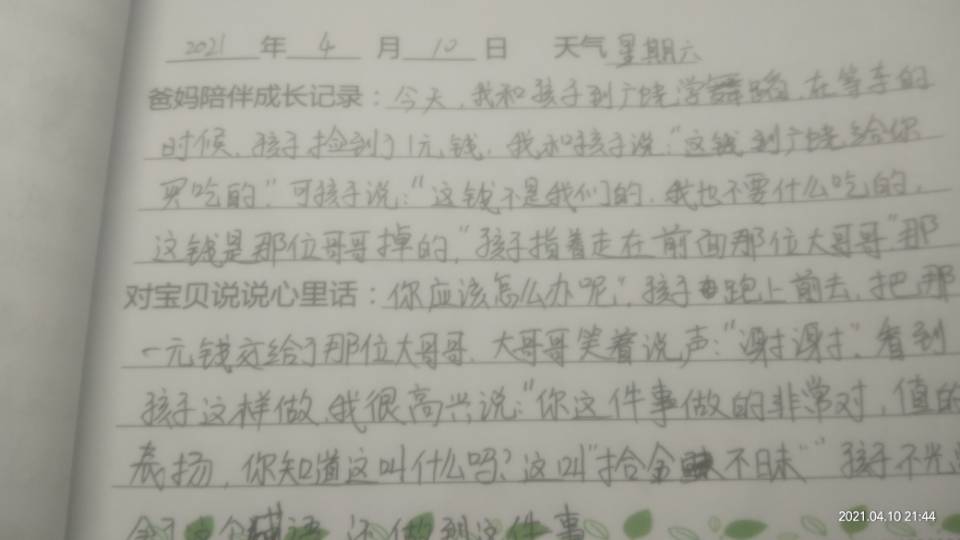 2021 年 4 月 10 日 天气 星期六
爸妈陪伴成长记录：今天，我和孩子到广饶学舞蹈，在等车的
时候，孩子捡到了1元钱，我和孩子说："这钱到广饶给你
买吃的"，可孩子说："这钱不是我们的，我也不要什么吃的，
这钱是那位哥哥掉的，"孩子指着走在前面那位大哥哥"那
对宝贝说说心里话：你应该怎么办呢"，孩子跑上前去，把那
一元钱交给了那位大哥哥，大哥哥笑着说声："谢谢"，看到
孩子这样做，我很高兴说："你这件事做的非常对，值的
表扬，你知道这叫什么吗？这叫"拾金不昧""孩子不光
这个成语，还做到这件事
2021.04.10 21:44